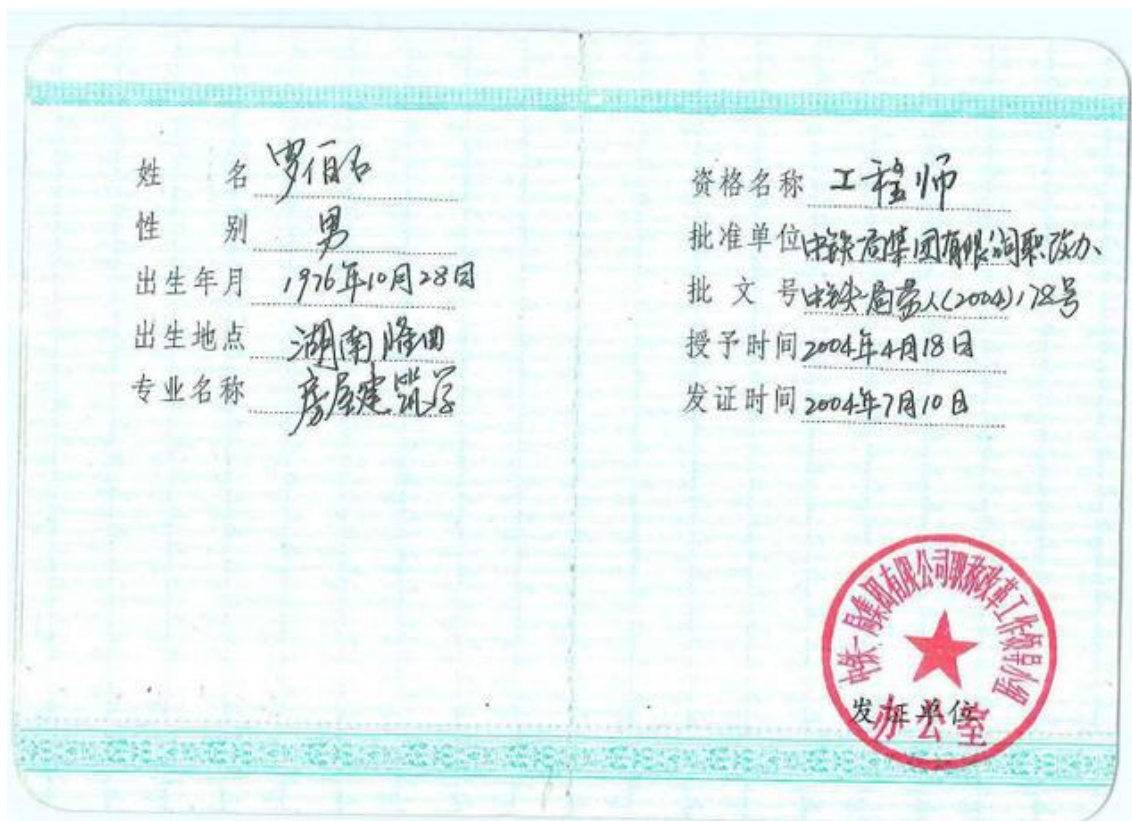 姓 名 罗
性 别 男
出生年月 1976年10月28日
出生地点 湖南隆回
专业名称 房屋建筑学
资格名称 工程师
批准单位 中铁一局集团有限公司职改办
批文号 中铁一局劳人(2004)178号
授予时间 2004年4月18日
发证时间 2004年7月10日
中铁一局集团有限公司职称改革工作领导小组
办公室
发证单位